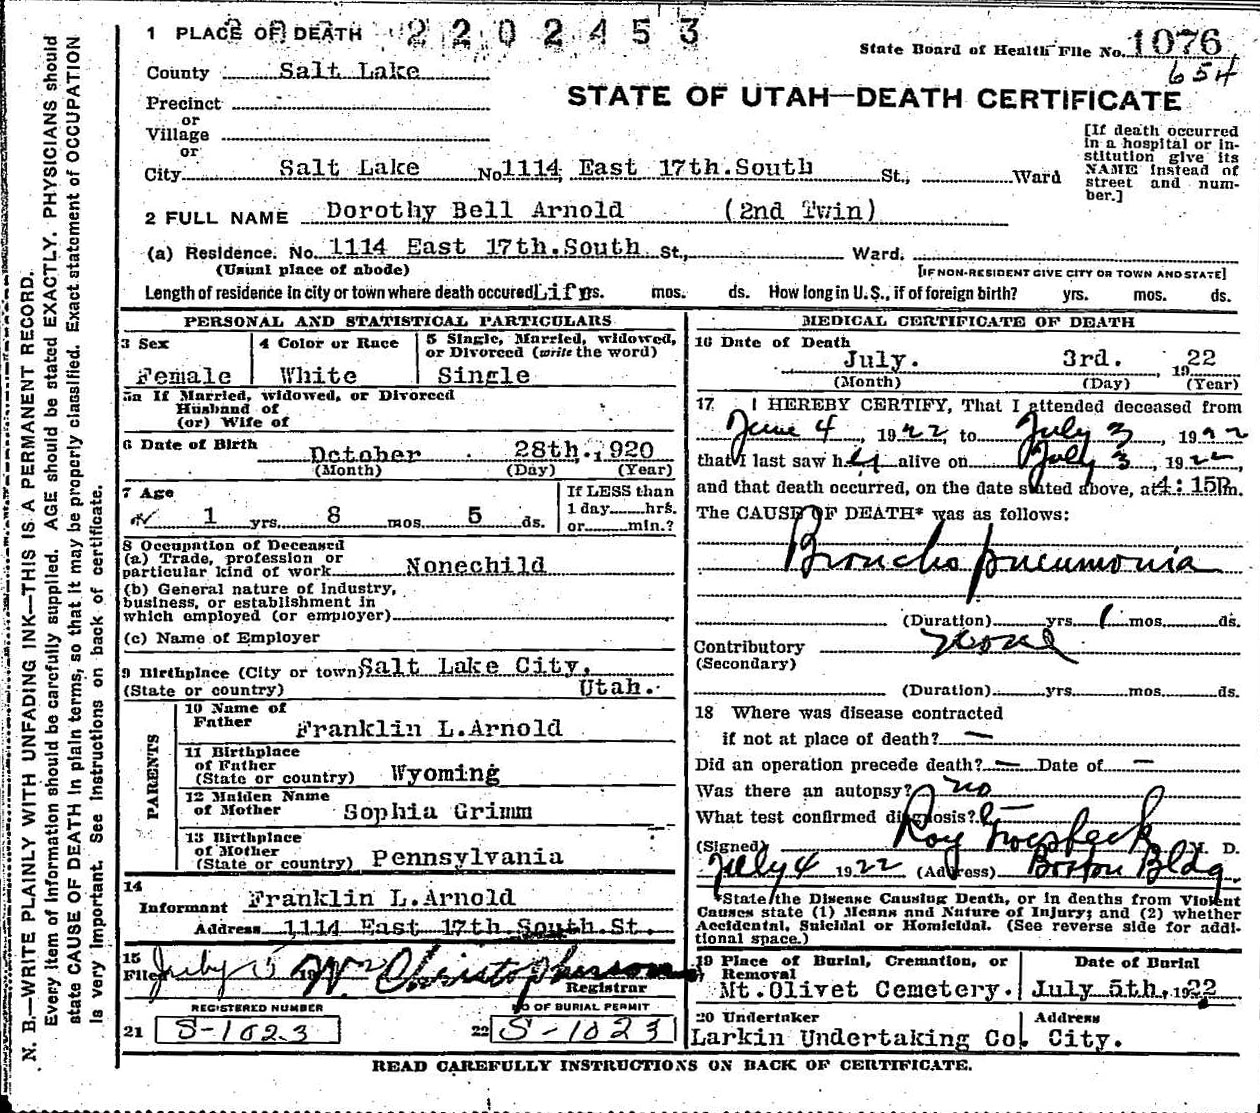 1 PLACE OF DEATH 2202453
State Board of Health File No. 1076
654
County Salt Lake
STATE OF UTAH—DEATH CERTIFICATE
Precinct
or
Village
or
City Salt Lake No. 1114 East 17th.South St., Ward
[If death occurred
in a hospital or in-
stitution give its
NAME instead of
street and num-
ber.]
2 FULL NAME Dorothy Bell Arnold (2nd Twin)
(a) Residence. No. 1114 East 17th.South St., Ward.
(Usual place of abode) [IF NON-RESIDENT GIVE CITY OR TOWN AND STATE]
Length of residence in city or town where death occured Life yrs. mos. ds. How long in U.S., if of foreign birth? yrs. mos. ds.
PERSONAL AND STATISTICAL PARTICULARS
3 Sex 4 Color or Race 5 Single, Married, widowed,
or Divorced (write the word)
Female White Single
5a If Married, widowed, or Divorced
Husband of
(or) Wife of
6 Date of Birth October 28th. 1920
(Month) (Day) (Year)
7 Age If LESS than
1 yrs. 8 mos. 5 ds. 1 day hrs.
or min.?
8 Occupation of Deceased
(a) Trade, profession or
particular kind of work Nonechild
(b) General nature of industry,
business, or establishment in
which employed (or employer)
(c) Name of Employer
9 Birthplace (City or town) Salt Lake City,
(State or country) Utah.
PARENTS
10 Name of
Father Franklin L.Arnold
11 Birthplace
of Father
(State or country) Wyoming
12 Maiden Name
of Mother Sophia Grimm
13 Birthplace
of Mother
(State or country) Pennsylvania
14
Informant Franklin L.Arnold
Address 1114 East 17th.South.St.
15
Filed July 5 19 Wm Christopherson
Registrar
REGISTERED NUMBER NO OF BURIAL PERMIT
21 S-1023 22 S-1023
MEDICAL CERTIFICATE OF DEATH
16 Date of Death
July. 3rd. 1922
(Month) (Day) (Year)
17 I HEREBY CERTIFY, That I attended deceased from
June 4, 1922, to July 3, 1922
that I last saw her alive on July 3, 1922,
and that death occurred, on the date stated above, at 4:15P.m.
The CAUSE OF DEATH* was as follows:
Broncho pneumonia
(Duration) yrs. 1 mos. ds.
Contributory None
(Secondary)
(Duration) yrs. mos. ds.
18 Where was disease contracted
if not at place of death? —
Did an operation precede death? — Date of —
Was there an autopsy? no
What test confirmed diagnosis?
(Signed) Roy Groesbeck M. D.
July 4 1922 (Address) Boston Bldg.
*State the Disease Causing Death, or in deaths from Violent
Causes state (1) Means and Nature of Injury; and (2) whether
Accidental, Suicidal or Homicidal. (See reverse side for addi-
tional space.)
19 Place of Burial, Cremation, or Date of Burial
Removal
Mt.Olivet Cemetery. July 5th, 1922
20 Undertaker Address
Larkin Undertaking Co. City.
READ CAREFULLY INSTRUCTIONS ON BACK OF CERTIFICATE.
N. B.—WRITE PLAINLY WITH UNFADING INK—THIS IS A PERMANENT RECORD.
Every item of information should be carefully supplied. AGE should be stated EXACTLY. PHYSICIANS should
state CAUSE OF DEATH in plain terms, so that it may be properly classified. Exact statement of OCCUPATION
is very important. See Instructions on back of certificate.